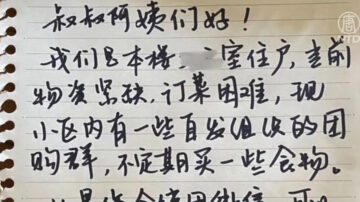 叔叔阿姨们好！
我们是本楼 室住户，当前
物资紧缺，订菜困难，现
小区内有一些自发组织的团
购群，不定期买一些食物。